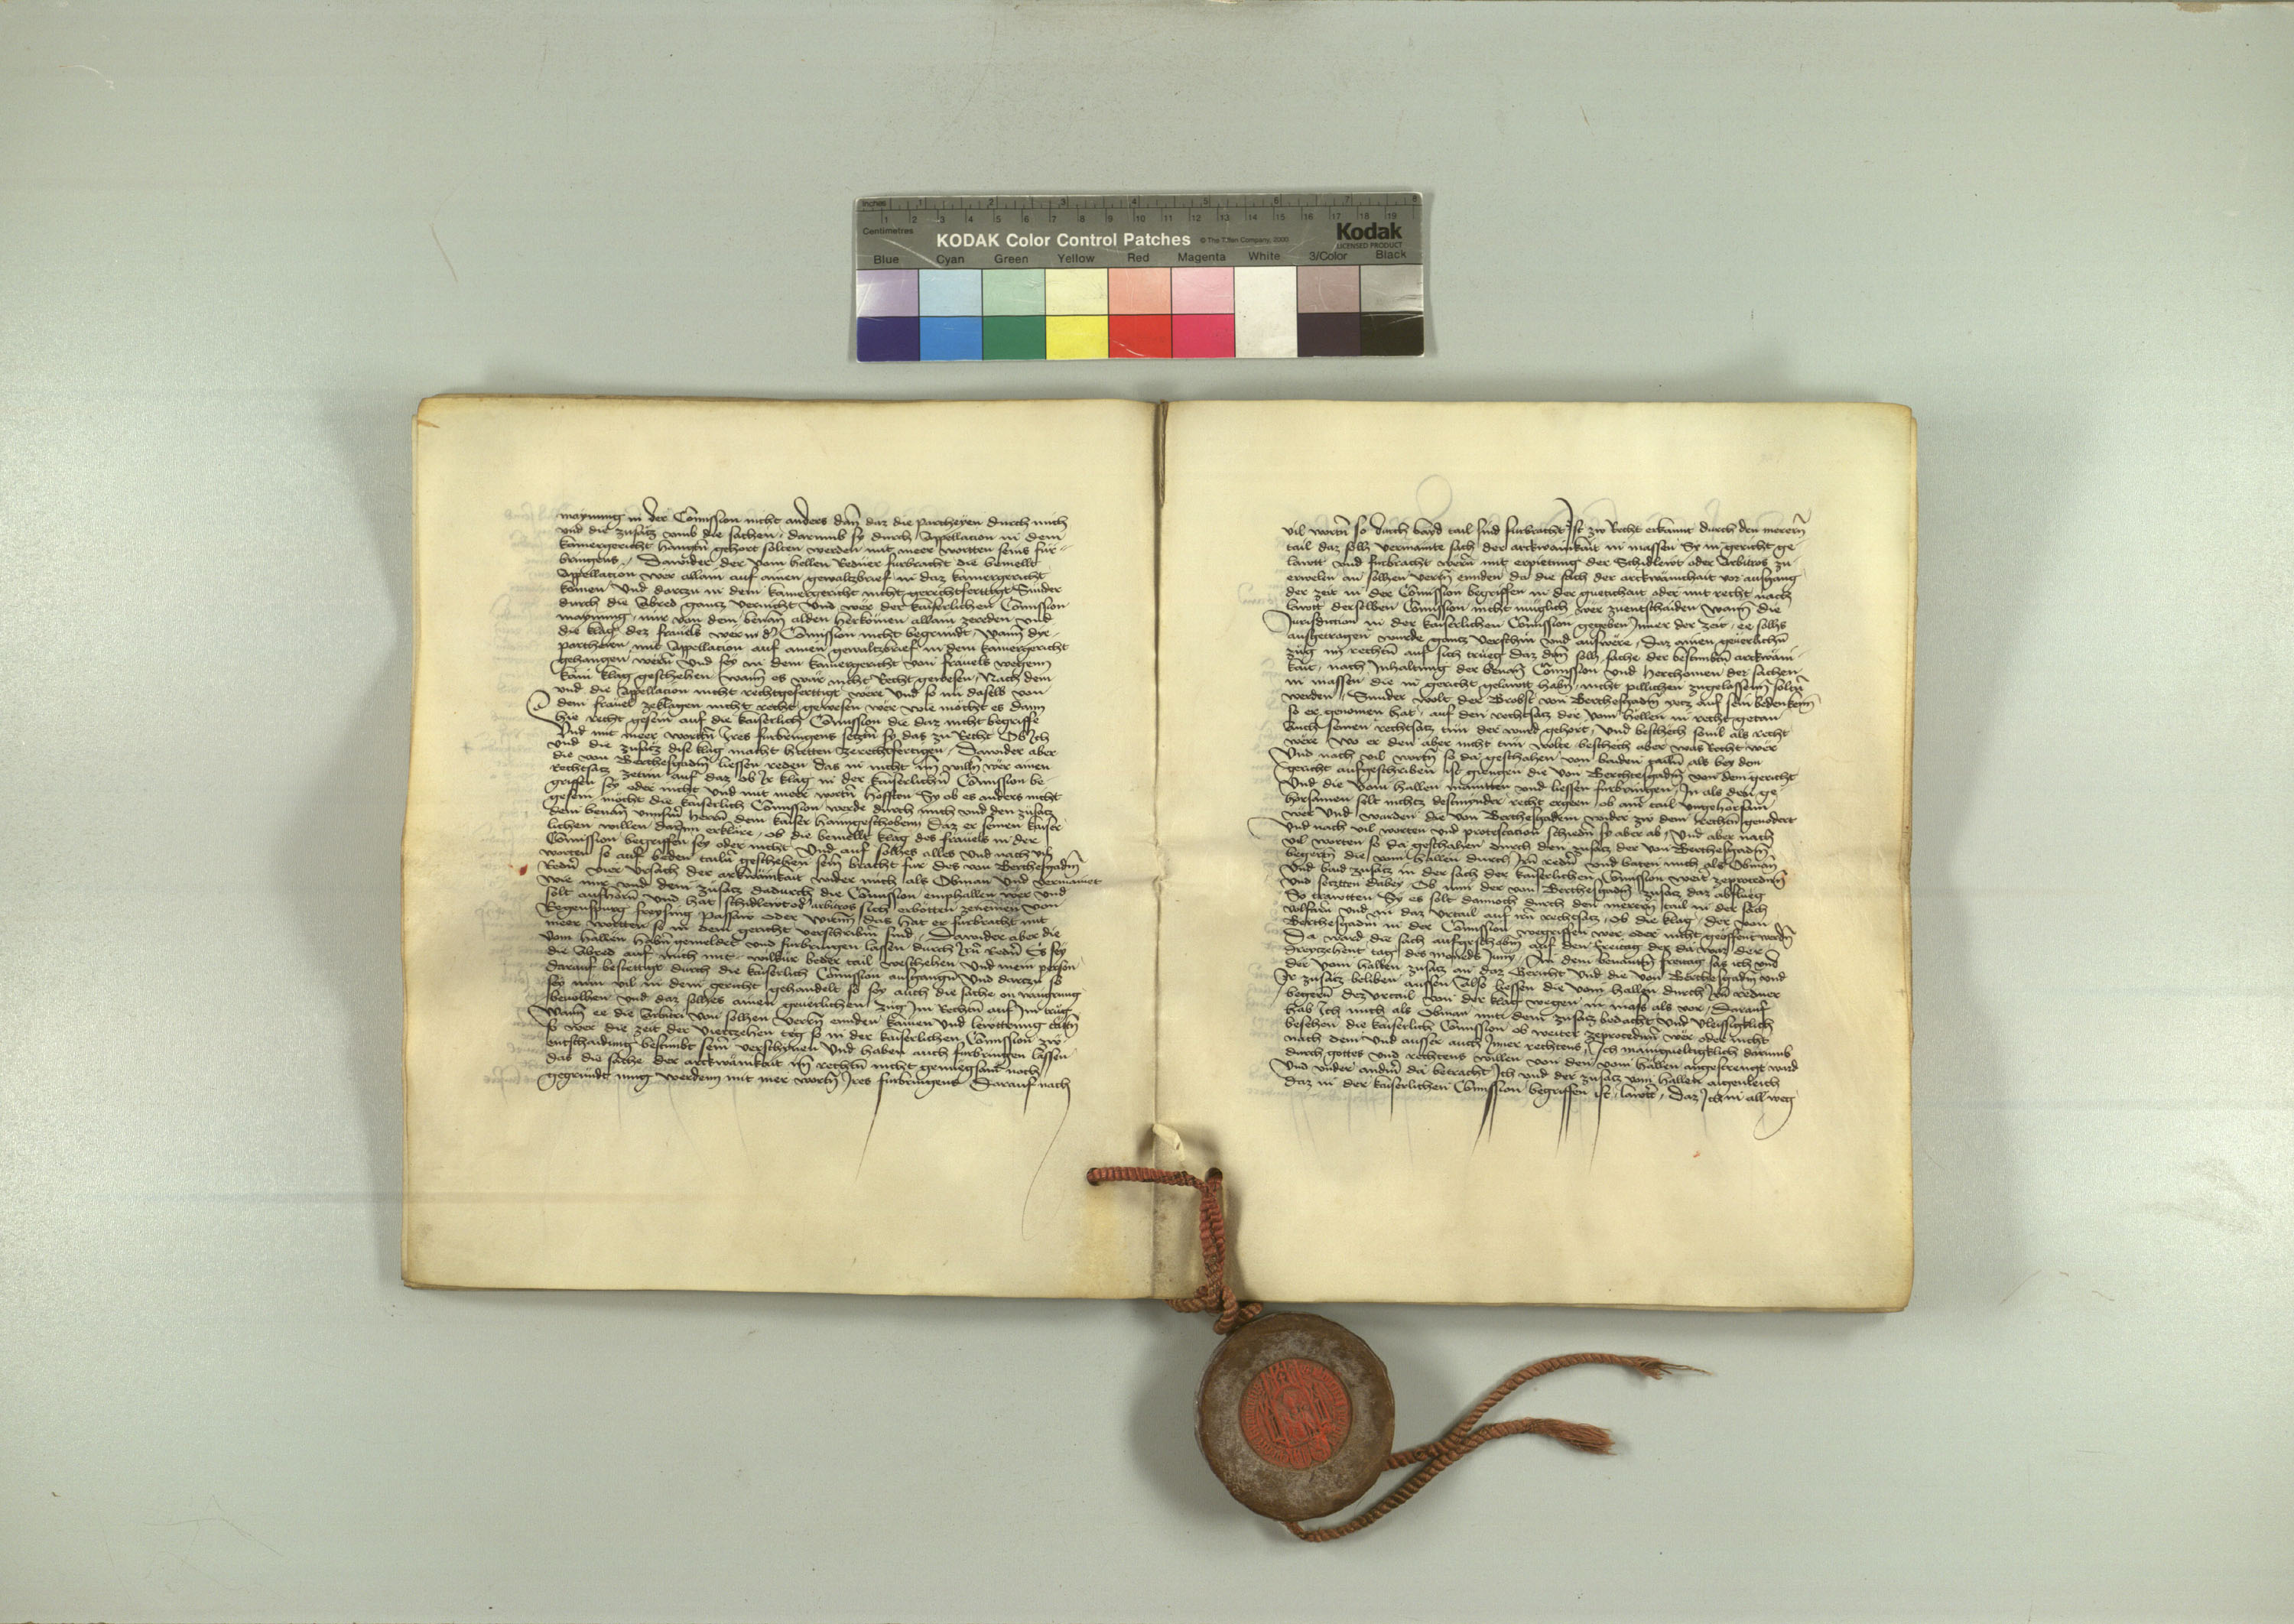 inches 1 2 3 4 5 6 7 8
1 2 3 4 5 6 7 8 9 10 11 12 13 14 15 16 17 18 19
Centimetres
KODAK Color Control Patches © The Tiffen Company, 2000 Kodak
LICENSED PRODUCT
Blue Cyan Green Yellow Red Magenta White 3/Color Black
maynung in der Comission nicht anders dann daz die partheyen durch mich
und die zusätz umb die sachen, darumb sy durch Appellacion in dem
kamergericht hangen gehort solten werden mit meer wortten seins fur-
bringens, Dawider der vom hellen Redner furbracht die bemellt
Appellacion wer allain auf ainen gewaltzbrief in daz kamergericht
komen Und dartzu in dem kamergericht nicht gerechtferttigt Sunder
durch die Abred gantz vernicht Und wer der kaiserlichen Comission
maynung, nur von dem benan alden herkomen allain zereden und
die klag dez frauels wer in der Comission nicht begrundt, Wann die
partheien mit Appellacion auf ainen gewaltzbrief in dem kamergericht
gehangen wern Und sey in dem kamergericht von frauels wegenn
kain klag geschehen Wann es war nicht Recht gewesen, Nach dem
und die Appellacion nicht rechtgeferttigt were Und so im daselb von
dem frauel zeklagen nicht recht gewesen wer wie möcht es dann
hie recht gesein auf die kaiserlich Comission die daz nicht begriffe
Und mit meer wortn Ires furbringens setzn sy das zu Recht Ob ich
und die zusätz dise klag macht hietten zerechtfertigen, Dawider aber
die von Berchtesgadn liessen reden das in nicht im willn wer ainen
rechtsatz zetun auf daz ob Ir klag in der kaiserlichn Comission be-
griffen sey oder nicht Und mit meer wortn hofften Sy ob es anders nicht
gesein möcht die kaiserlich Comission werde durch mich und den zusatz
dem benan unnserm herrn dem kaiser haimgeschobenn Daz er seinen kaiser-
lichen willen darinn erkläre, ob die bemellt klag des frauels in der
Comission begriffen sey oder nicht Und auf sölhes alles Und nach vil
worten so auf beden tailn geschehen sein bracht fur des von Berchtesgadn
Redn vier Ursach der arkwänikait wider mich als Obman Und vermainet
wie mir und dem zusatz dadurch die Comission emphallen wer Und
solt aufhorn Und hat schidlewt oder arbitros sich erbotten zenemen von
Regenspurg freysing passaw oder wienn das hat er furbracht mit
meer wortten so in dem gericht verschribn sind, Dawider aber die
vom hallen habn gemeldet und furbringen lassen durch Irn Redn Es sey
die Abred auf mich mit wilkür beder tail beschehen Und mein person
darauf bestettigt durch die kaiserlich Comission ausgangn Und dartzu so
sey nun vil in dem gericht gehandelt so sey auch die sache on waigrung
bevolhen und daz sölhes ainen geuerlichen zug Im Rechtn auf Im trüg
Wann ee die Arbitri von sölhen verrn ennden kämen Und lewttrung tätn
so wer die zeit der viertzehen teg so in der kaiserlichen Comission zw
entschaidung bestimbt sein verschinen Und haben auch furbringen lassen
daz die sache der arckwänikait im rechtn nicht genuegsam noch
gegründt mug werdenn mit mer wortn Ires furbringens Darauf nach
vil wortn so durch bayd tail sind furbracht Ist zw Recht erkannt durch den merern
tail daz sölh vermainte sach der arckwänikait in massen Sy in gericht ge-
lawtt und furbracht wern mit erpietung der Schidlewt oder Arbitros zu
erwelen an sölhen verrn ennden da die sach der arckwänichait vor ausgang
der zeit in der Comission begriffen in der guetichait oder mit recht nach
lawtt derselben Comission nicht müglich wer zuentschaiden Wann die
Jurisdiction in der kaiserlichen Comission gegeben Inner der zeit, ee sölhs
ausgetragen wurde gantz verschin und auswere, Daz ainen geuerlichn
zug im rechtn auf sich trueg daz dann sölh sache der bestimbtn arckwäni-
kait, nach Inhaltung der benan Comission und herchomen der sachen
in massen die in gericht gelawtt habn, nicht pillichen zugelassenn soltn
werden, Sunder wolt der Brobst von Berchtesgadn yetz auf sein bedenkenn
so er genomen hat, auf den rechtsatz der vom hellen in recht getan
Auch seinen rechtsatz tun der wurd gehort, Und beschech souil als recht
were Wo er den aber nicht tun wolte beschech aber was Recht wer
Und nach vil wortn so da geschahen von baiden tailn als bey dem
gericht aufgeschriben ist giengen die von Berchtesgadn von dem gericht
Und die vom hallen mainten und liessen furbringen In als den ge-
horsamen solt nichtz destmynder recht ergeen, ob ain tail ungehorsam
wer Und wurden die von Berchtesgadem wider zw dem Rechtn geuodert
Und nach vil worten und protestacion schiedn sy aber ab, Und aber nach
vil worten so da geschahen durch den zusatz der von Berchtesgadn
begertn die vom hallen durch Irn redn und baten mich als Obman
Und baid zusätz in der sach der kaiserlichen Comission weit zeprocedirn
Und setzten dabey, Ob nun der von Berchtesgadn zusatz daz abslueg
So trawtten Sy es solt dannoch durch den merern tail in der sach
volfarn und in daz Urtail auf irn rechtsatz, ob die klag, der von
Berchtesgadn in der Comission begriffen wer oder nicht geöffent werdn
Da ward die sach aufgeschobn auf den freitag der da was der
dreyzehent tag des moneds Juny, An dem benantn freitag sas ich und
der vom hallen zusatz an daz Gericht Und die von Berchtesgadn und
Ir zusatz beliben aussen Also liessen die vom hallen durch Irn redner
begern dez Urtail von der klag wegen in mass als vor, Darauf
hab Ich mich als Obman mit dem zusatz bedacht und vleissigklich
besehen die kaiserlich Comission ob weiter zeprocedirn wer oder nicht
nach dem und ausser auch Inner rechtens, Ich manigueltigklich darumb
durch gottes und rechtens willen von den vom hallen angestrengt wird
Und under andern da betracht Ich und der zusatz vom hallen aigenleich
daz in der kaiserlichen Comission begriffen ist, lawtt, Daz Ich in all weg